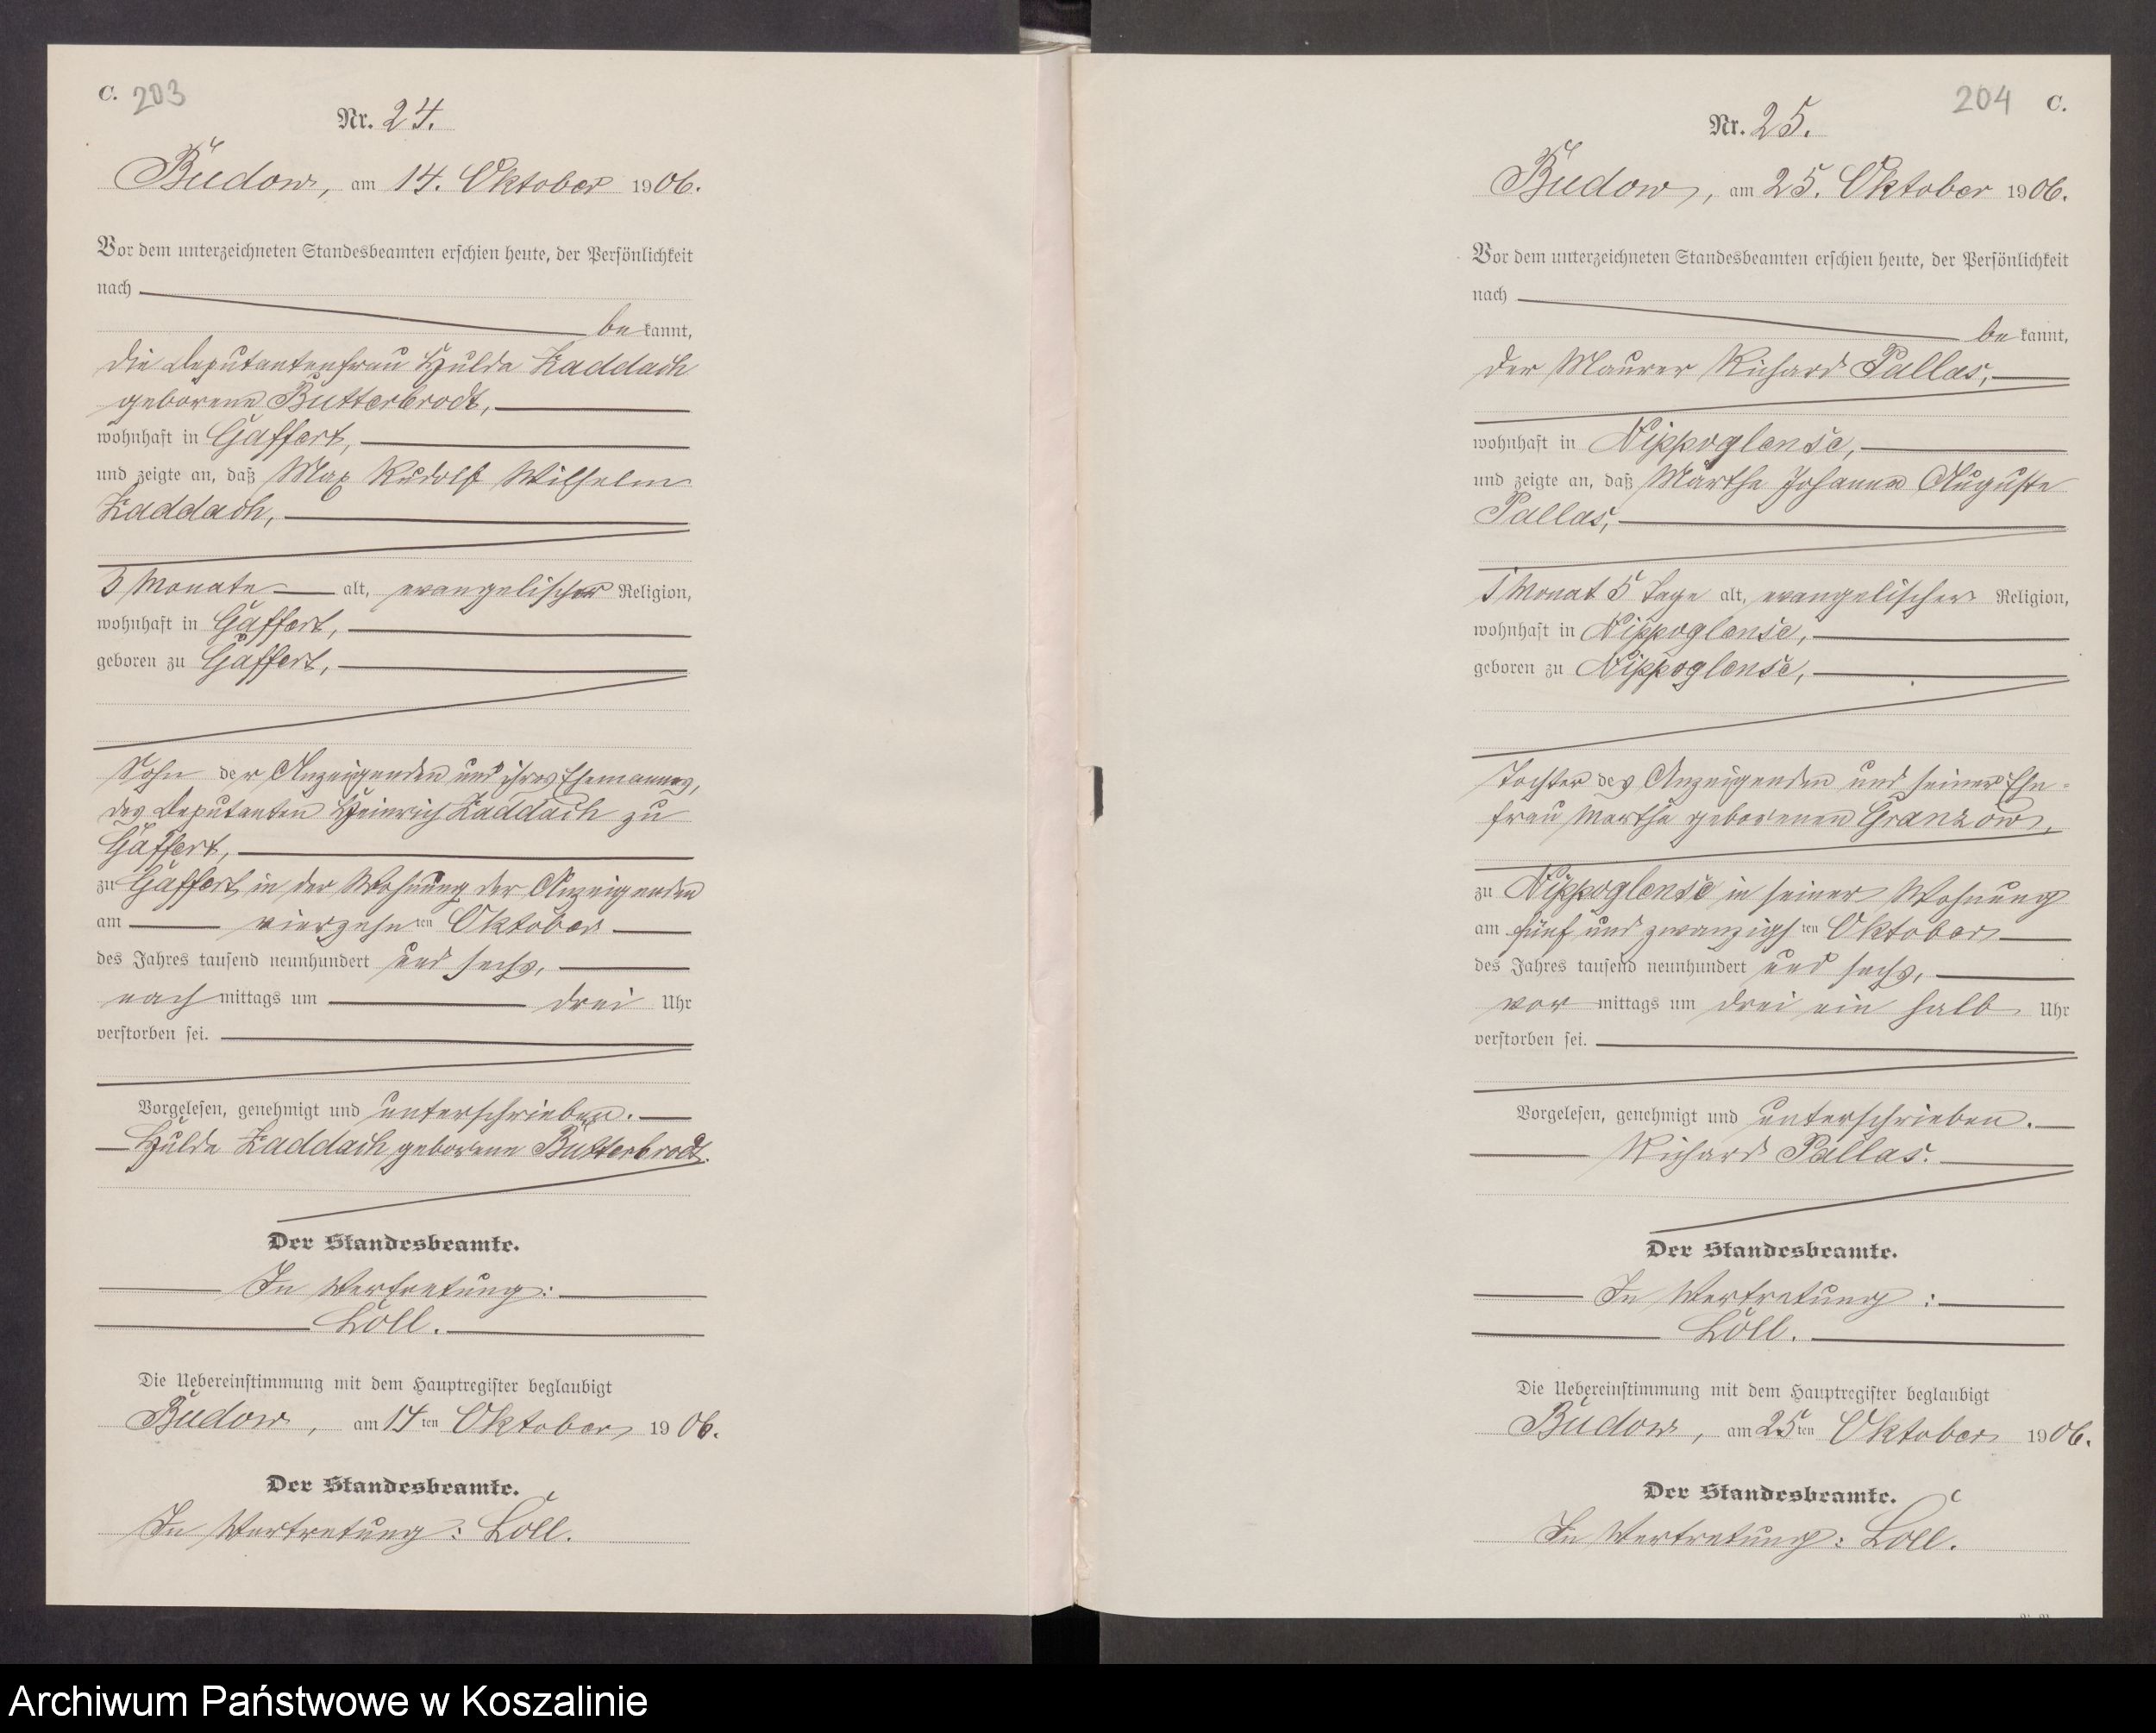 C. 203
Nr. 24.
Budow, am 14. Oktober 1906.
Vor dem unterzeichneten Standesbeamten erschien heute, der Persönlichkeit
nach
be kannt,
die Deputantenfrau Hulda Zaddach
geborene Butterbrodt,
wohnhaft in Gaffert,
und zeigte an, daß Max Rudolf Wilhelm
Zaddach,
Monate alt, evangelischer Religion,
wohnhaft in Gaffert,
geboren zu Gaffert,
Sohn der Anzeigenden und ihres Ehemannes,
des Deputanten Heinrich Zaddach zu
Gaffert,
zu Gaffert, in der Wohnung der Anzeigenden
am vierzehnten Oktober
des Jahres tausend neunhundert und sechs,
nach mittags um drei Uhr
verstorben sei.
Vorgelesen, genehmigt und unterschrieben.
Hulda Zaddach geborene Butterbrodt.
Der Standesbeamte.
In Vertretung:
Löll.
Die Uebereinstimmung mit dem Hauptregister beglaubigt
Budow, am 14ten Oktober 1906.
Der Standesbeamte.
In Vertretung: Löll.
204 C.
Nr. 25.
Budow, am 25. Oktober 1906.
Vor dem unterzeichneten Standesbeamten erschien heute, der Persönlichkeit
nach
be kannt,
der Maurer Richard Pallas,
wohnhaft in Nippoglense,
und zeigte an, daß Martha Johanna Auguste
Pallas,
1 Monat 5 Tage alt, evangelischer Religion,
wohnhaft in Nippoglense,
geboren zu Nippoglense,
Tochter des Anzeigenden und seiner Ehe-
frau Martha geborenen Granzow,
zu Nippoglense in seiner Wohnung
am fünf und zwanzigsten Oktober
des Jahres tausend neunhundert und sechs,
vor mittags um drei ein halb Uhr
verstorben sei.
Vorgelesen, genehmigt und unterschrieben.
Richard Pallas.
Der Standesbeamte.
In Vertretung:
Löll.
Die Uebereinstimmung mit dem Hauptregister beglaubigt
Budow, am 25ten Oktober 1906.
Der Standesbeamte.
In Vertretung: Löll.
Archiwum Państwowe w Koszalinie